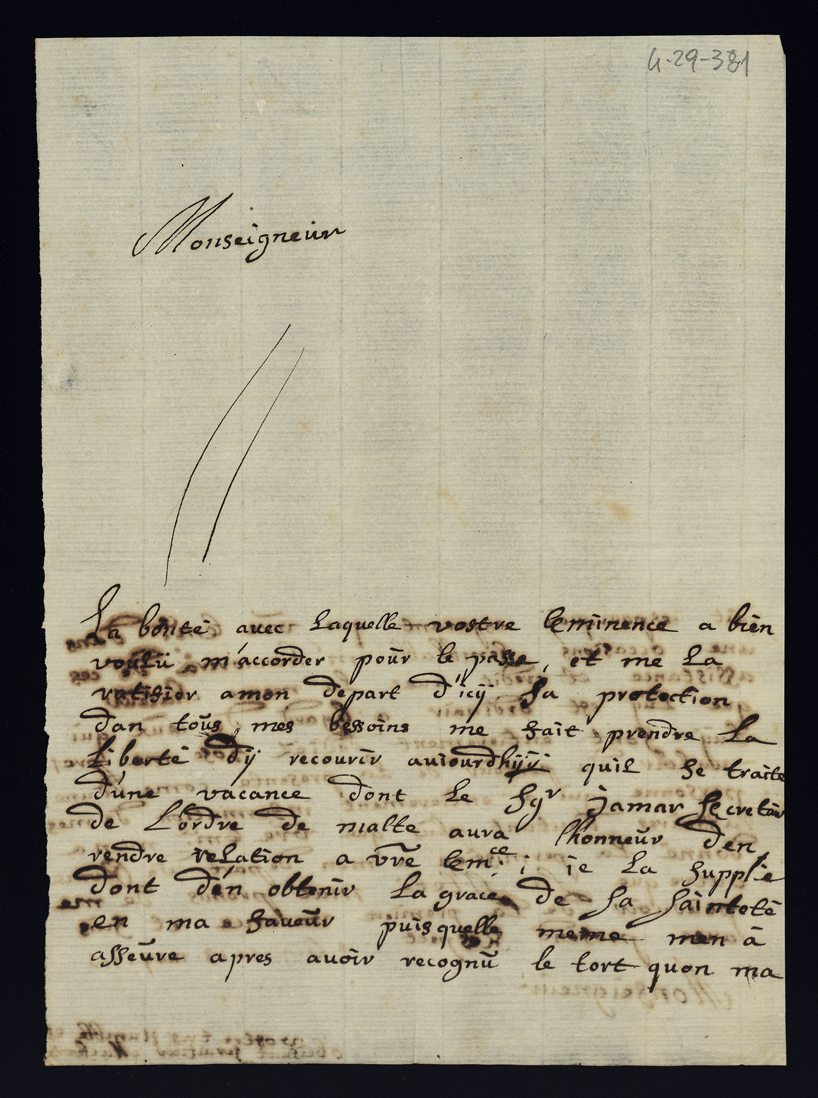 4-29-381
Monseigneur
La bonté avec laquelle vostre Eminence a bien
voulu m'accorder pour le passe, et me la
ratifier a mon depart d'icÿ sa protection
dan tous mes besoins me fait prendre la
liberté d'ÿ recourir aujourdhüÿ quil se traite
d'une vacance dont le Sgr jamar secretair
de L'ordre de malte aura lhonneur d'en
rendre relation a vre Emce: je la supplie
dont d'en obtenir la grace de sa sainteté
en ma faveur puisquelle meme men à
asseure apres avoir recognu le tort quon ma